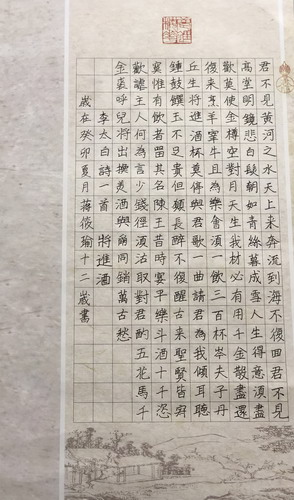 君不見黃河之水天上来奔流到海不復回君不見
高堂明鏡悲白髮朝如青絲暮成雪人生得意須盡
歡莫使金樽空對月天生我材必有用千金散盡還
復来烹羊宰牛且為樂會須一飲三百杯岑夫子丹
丘生將進酒杯莫停與君歌一曲請君為我傾耳聽
鍾鼓饌玉不足貴但願長醉不復醒古来聖賢皆寂
寞惟有飲者留其名陳王昔時宴平樂斗酒十千恣
歡謔主人何為言少錢徑須沽取對君酌五花馬千
金裘呼兒將出換美酒與爾同銷萬古愁
李太白詩一首 將進酒
歲在癸卯夏月蔣筱瑜十二歲書